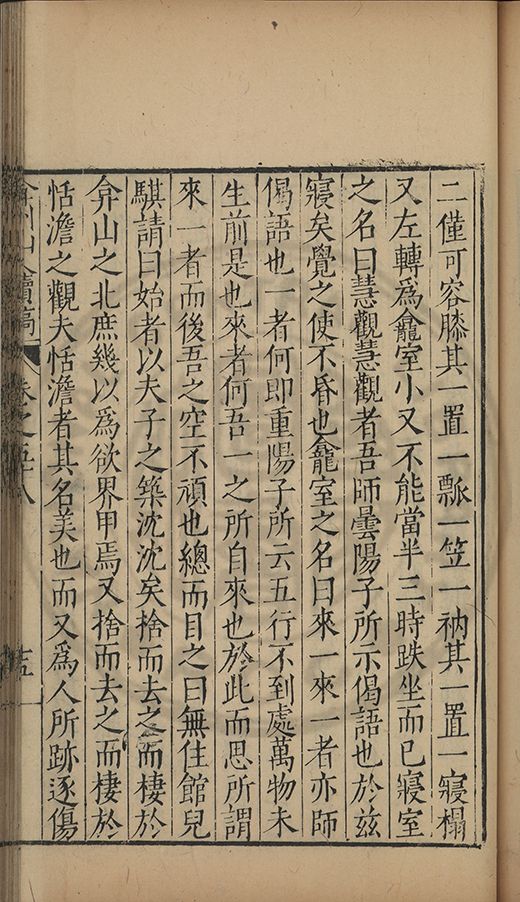 二僅可容膝其一置一瓢一笠一衲其一置一寢榻
又左轉為龕室小又不能當半三時趺坐而已寢室
之名曰慧觀慧觀者吾師曇陽子所示偈語也於玆
寢矣覺之使不昏也龕室之名曰來一來一者亦師
偈語也一者何即重陽子所云五行不到處萬物未
生前是也來者何吾一之所自來也於此而思所謂
來一者而後吾之空不頑也總而目之曰無住館兒
騏請曰始者以夫子之築沈沈矣捨而去之而棲於
弇山之北庶幾以為欲界甲焉又捨而去之而棲於
恬澹之觀夫恬澹者其名美也而又為人所跡逐傷
弇州山人續稿 卷之五十八 十五